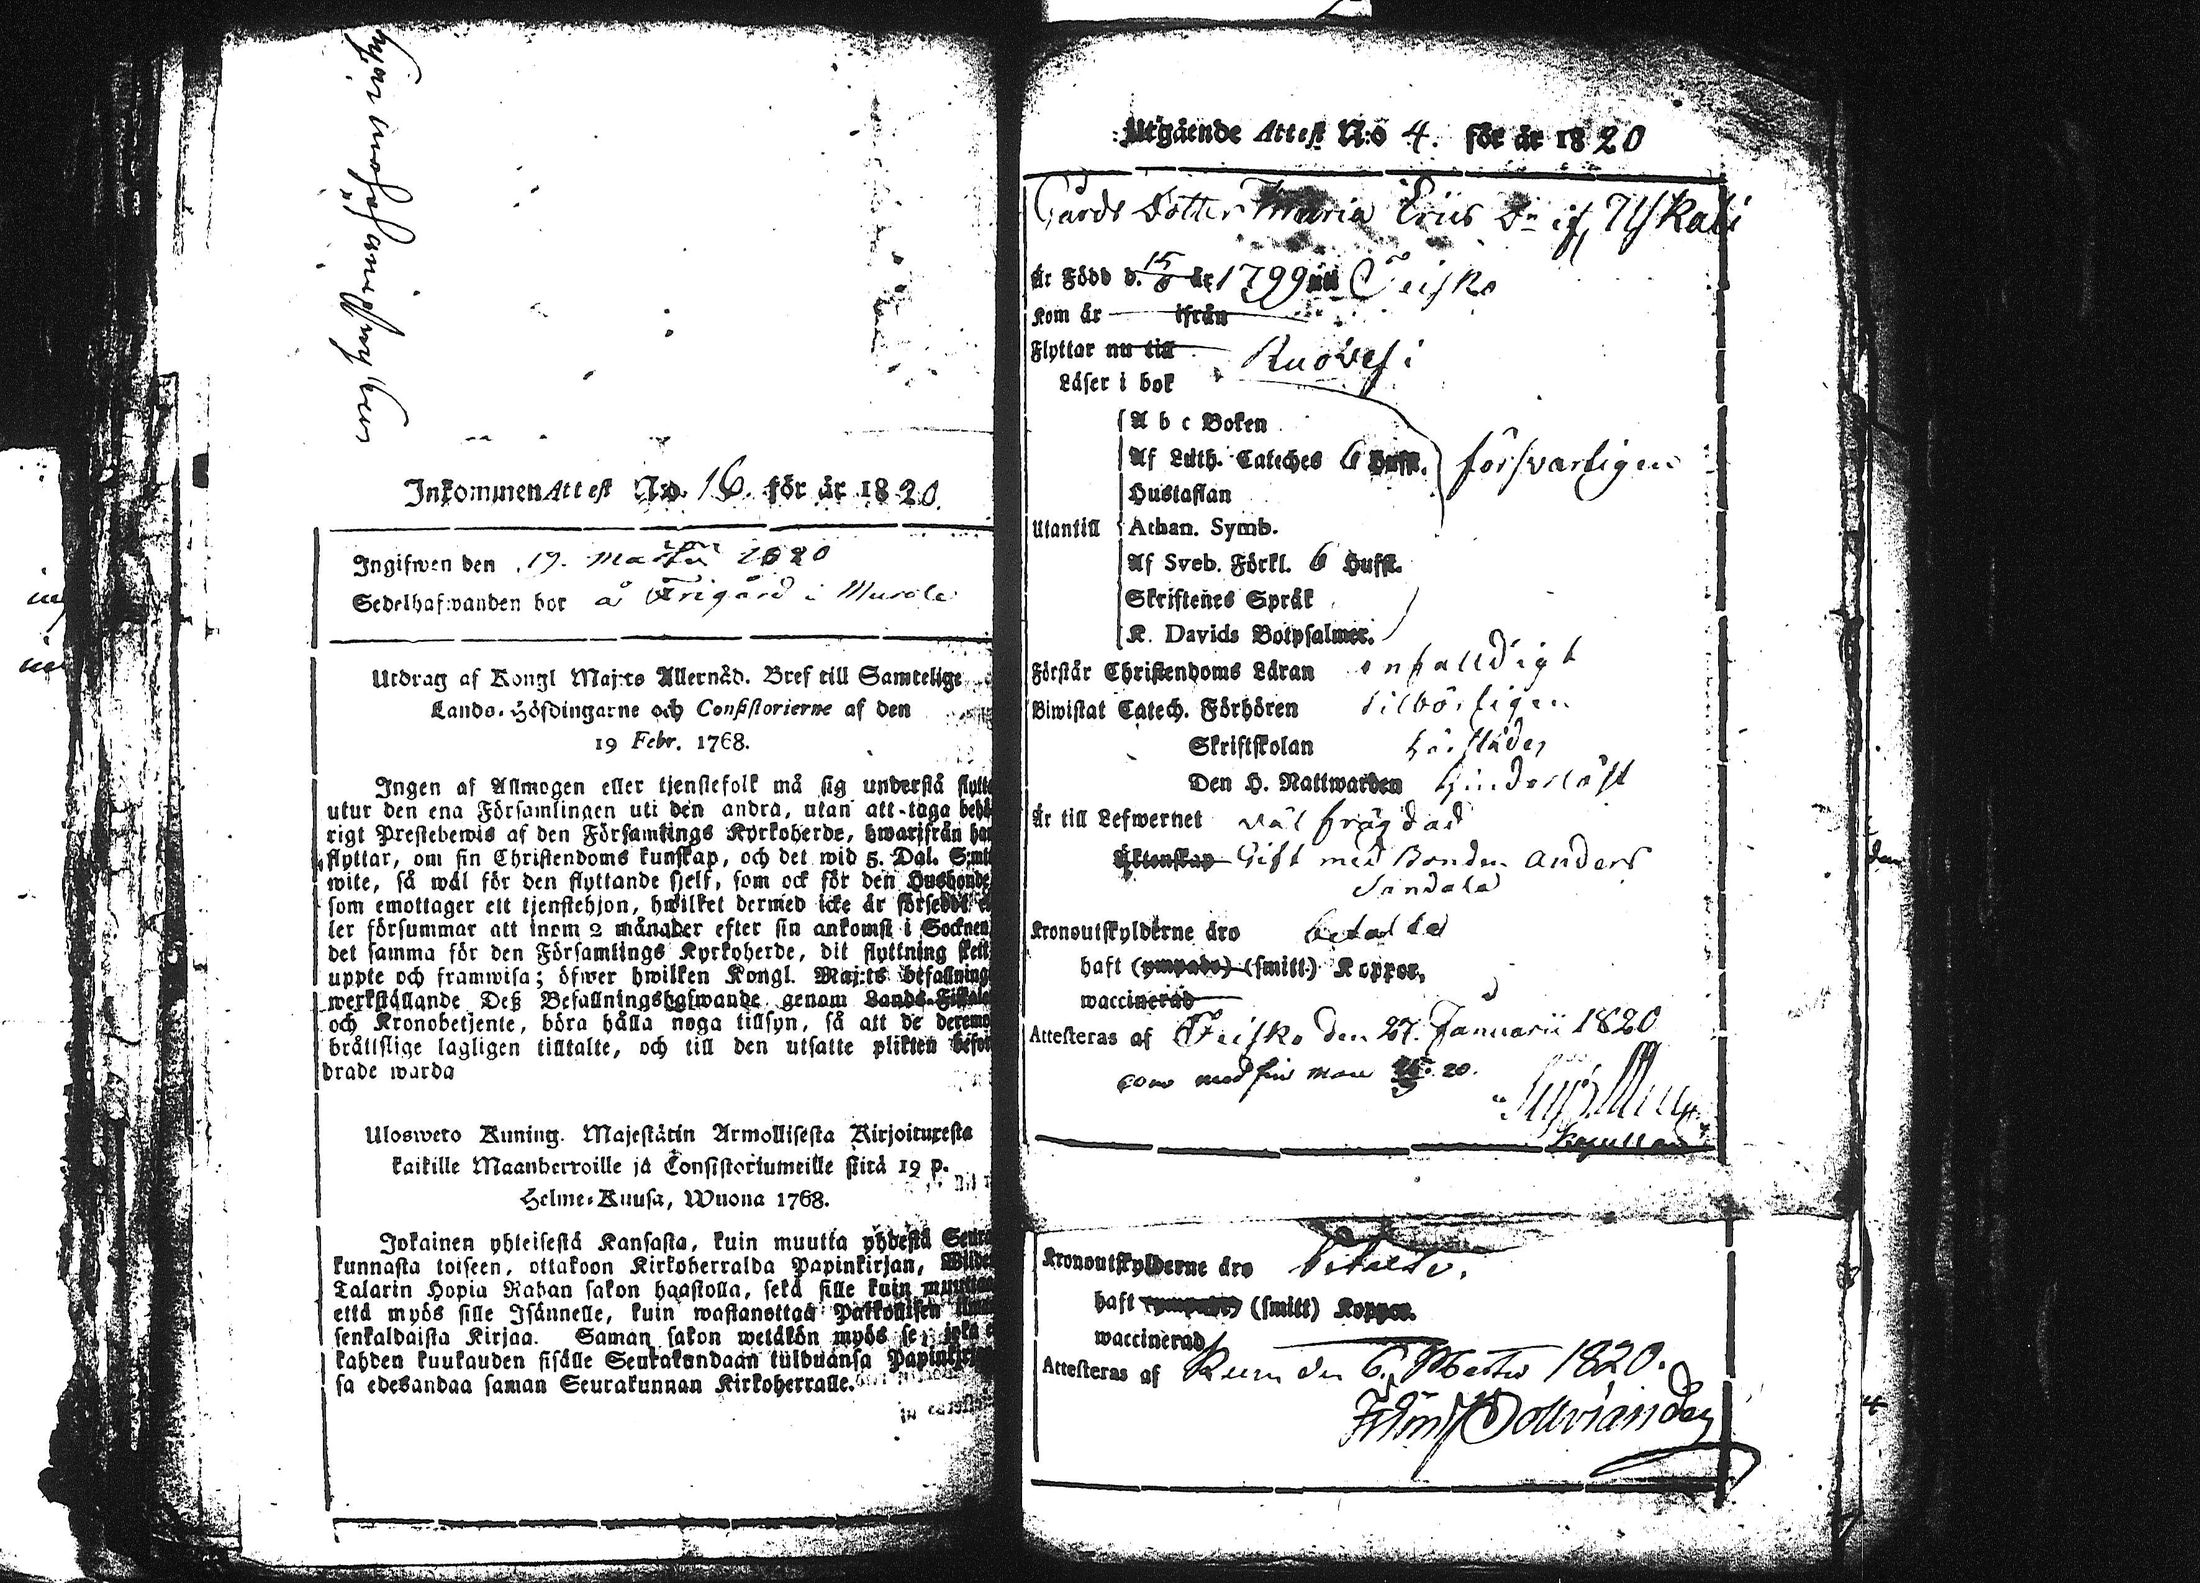 Inkommen Attest No. 16. för år 1820.
Ingifwen den 19. Martii 1820
Sedelhafwanden bor å Frigård i Murole
Utdrag af Kongl Maj:ts Allernåd. Bref till Samtelige
Lands-Höfdingarne och Consistorierne af den
19 Febr. 1768.
Ingen af Allmogen eller tjenstefolk må sig understå flytta
utur den ena Församlingen uti den andra, utan att taga behö
rigt Prestebewis af den Församlings Kyrkoherde, hwarifrån han
flyttar, om sin Christendoms kunskap, och det wid 5. Dal. S:mt
wite, så wäl för den flyttande sjelf, som ock för den Husbonde
som emottager ett tjenstehjon, hwilket dermed icke är försedt el
ler försummar att inom 2 månader efter sin ankomst i Socknen
det samma för den Församlings Kyrkoherde, dit flyttning skett
uppte och framwisa; öfwer hwilken Kongl. Maj:ts befallning
werkställande Deß Befallningshafwande genom Lands-Fiskale
och Kronobetjente, böra hålla noga tillsyn, så att de deremo
bråttslige lagligen tilltalte, och till den utsatte plikten befor
drade warda
Ulosweto Kuning. Majestätin Armollisesta Kirjoituxesta
kaikille Maanherroille ja Consistoriumeille siitä 19 p.
Helme-Kuusa, Wuona 1768.
Jokainen yhteisestä Kansasta, kuin muutta yhdestä Seura
kunnasta toiseen, ottakoon Kirkoherralda Papinkirjan, Wiiden
Talarin Hopia Rahan sakon haastolla, sekä sille kuin muuttaa
että myös sille Isännelle, kuin wastanottaa Palkollisen ilman
senkaldaista Kirjaa. Saman sakon wetäkön myös se, joka e
kahden kuukauden sisälle Seurakundaan tulduansa Papinkirjan
sa edesandaa saman Seurakunnan Kirkoherralle.
Utgående Attest N:o 4. för år 1820
Gårds Dotter Maria Eriks Dr if,
Är Född d. år 1799 uti Teisko
Kom år ifrån
Flyttar nu till Ruovesi
Läser i bok
A b c Boken
Af Luth. Cateches 6 Hufst. försvarligen
Hustaflan
Utantill Athan. Symb.
Af Sveb. Förkl. 6 Hufst.
Skriftenes Språk
K. Davids Botpsalmer.
Förstår Christendoms Läran enfalldigt
Biwistat Catech. Förhören tilbörligen
Skriftskolan härstädes
Den H. Nattwarden hinderlöst
Är till Lefwernet väl frägdad
Äktenskap Gift med Bonden Anders
Sandala
Kronoutskylderne äro betalta
haft (ympade) (smitt) Koppor,
waccinerad
Attesteras af Teisko den 27. Januarii 1820
med sin man 20.
Kronoutskylderne äro betalte.
haft (ympade) (smitt) Koppor.
waccinerad
Attesteras af den 6. Martii 1820.